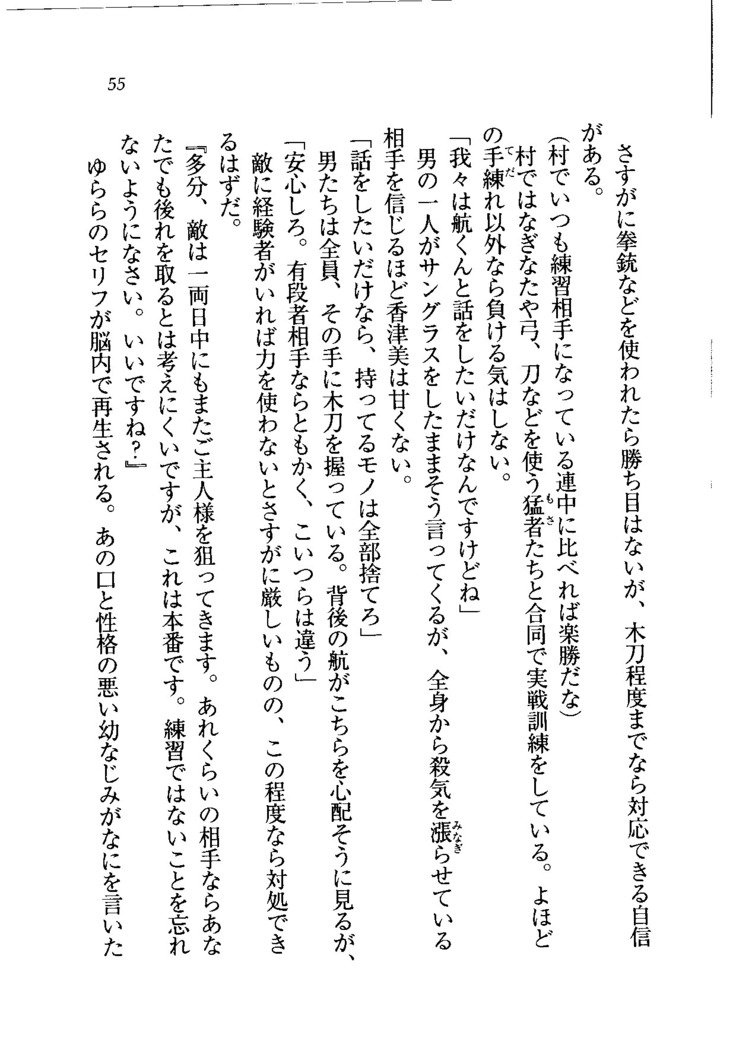 55
さすがに拳銃などを使われたら勝ち目はないが、木刀程度までなら対応できる自信
がある。
(村でいつも練習相手になっている連中に比べれば楽勝だな)
村ではなぎなたや弓、刀などを使う猛者たちと合同で実戦訓練をしている。よほど
の手練れ以外なら負ける気はしない。
「我々は航くんと話をしたいだけなんですけどね」
男の一人がサングラスをしたままそう言ってくるが、全身から殺気を漲らせている
相手を信じるほど香津美は甘くない。
「話をしたいだけなら、持ってるモノは全部捨てろ」
男たちは全員、その手に木刀を握っている。背後の航がこちらを心配そうに見るが、
「安心しろ。有段者相手ならともかく、こいつらは違う」
敵に経験者がいれば力を使わないとさすがに厳しいものの、この程度なら対処でき
るはずだ。
『多分、敵は一両日中にもまたご主人様を狙ってきます。あれくらいの相手ならあな
たでも後れを取るとは考えにくいですが、これは本番です。練習ではないことを忘れ
ないようになさい。いいですね?』
ゆららのセリフが脳内で再生される。あの口と性格の悪い幼なじみがなにを言いた